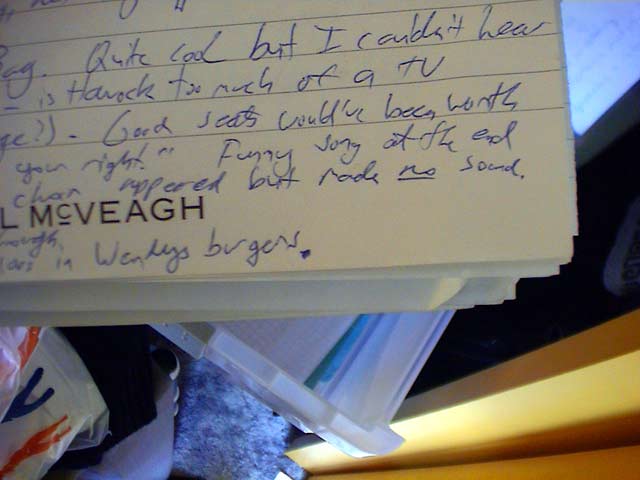 Bag. Quite cool but I couldn't hear
– is Hancock too much of a TV
ge?). - Good seats would've been worth
your right." Funny song at the end
choir appeared but made no sound.
L McVEAGH
in Wendys burgers.